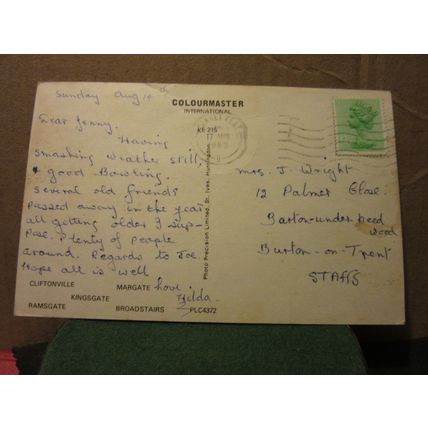 Sunday Aug 14th
Dear Jenny.
Having
smashing weathe still,
& good Bowling.
several old friends
passed away in the year,
all getting older I sup-
pose. Plenty of people
around. Regards to Joe.
Hope all is well
love.
Hilda.
COLOURMASTER
INTERNATIONAL
KE 215
Photo Precision Limited, St. Ives, Huntingdon
Mrs. J. Wright
12 Palmer Close.
Barton-under-need
wood
Burton-on-Trent
STAFFS
CLIFTONVILLE MARGATE
KINGSGATE
RAMSGATE BROADSTAIRS PLC4372